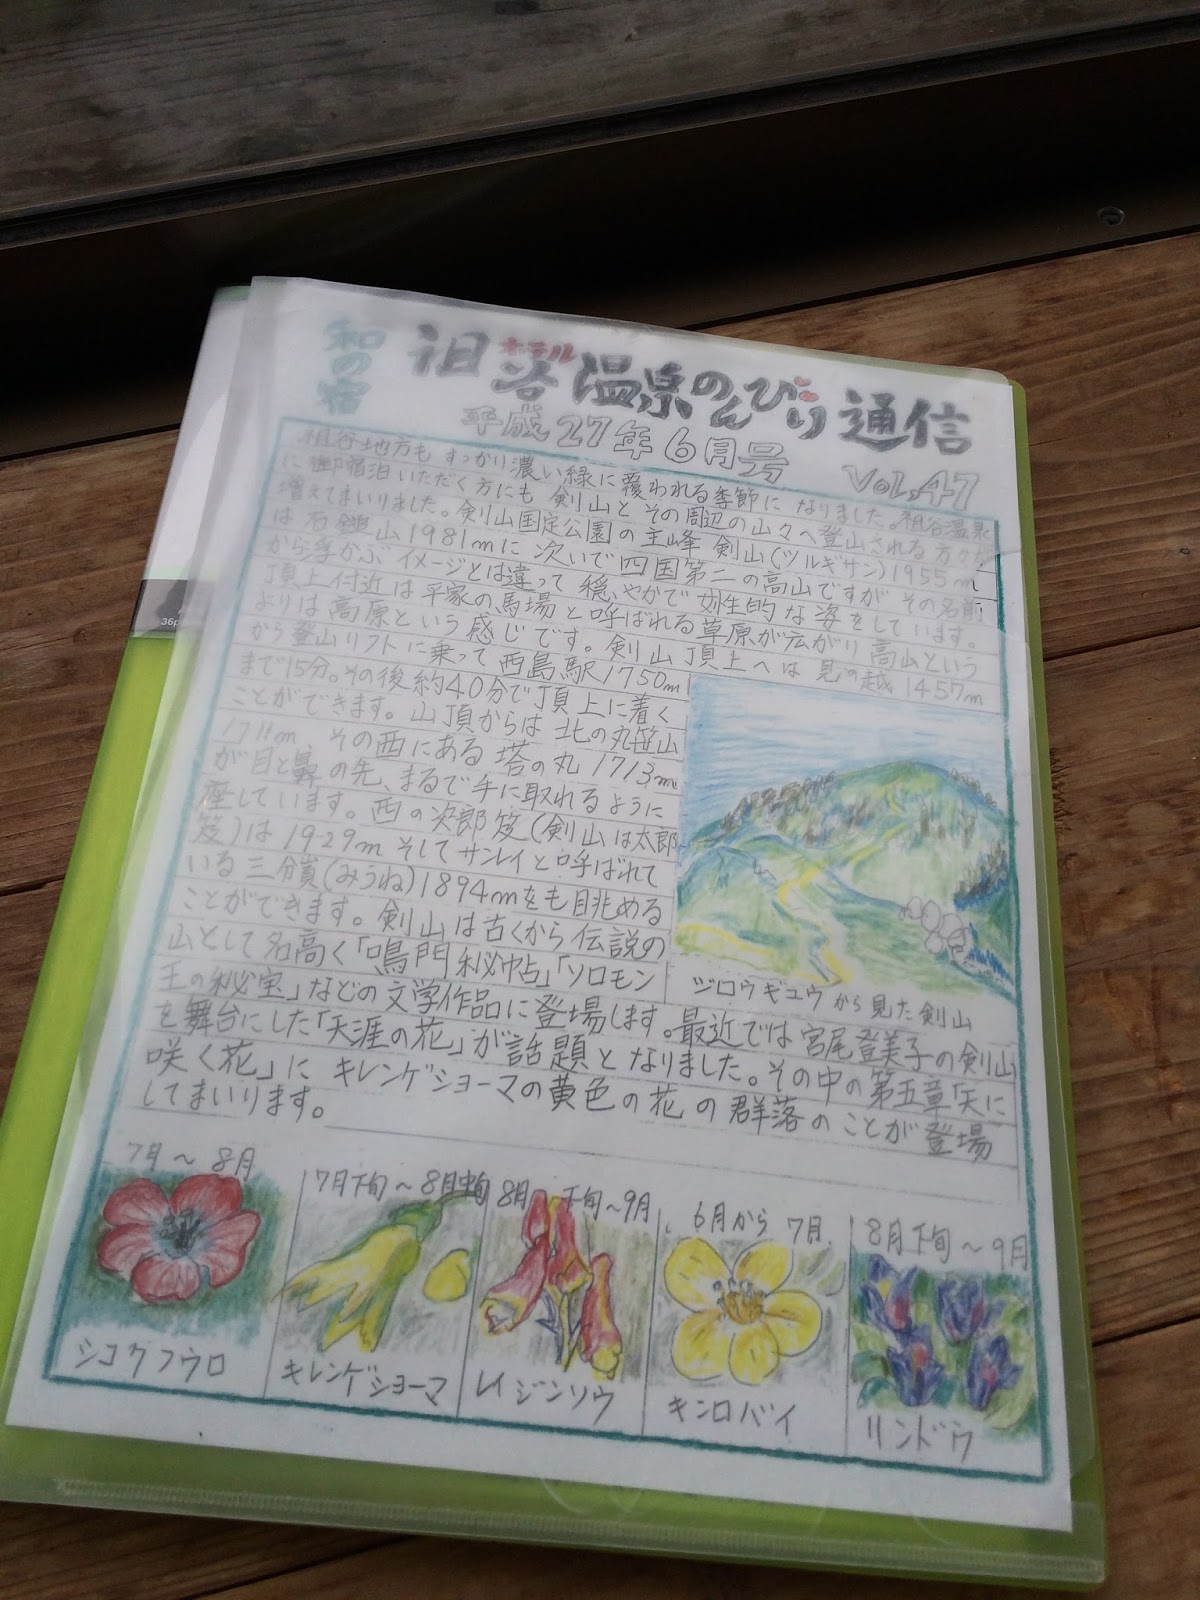 和の宿
ホテル
祖谷温泉のんびり通信
平成27年6月号
VOL,47
祖谷地方も すっかり濃い緑に覆われる季節に なりました。祖谷温泉
に御宿泊いただく方にも 剣山と その周辺の山々へ登山される方々が
増えてまいりました。剣山国定公園の主峰 剣山(ツルギサン)1955m
は石鎚山1981mに 次いで四国第二の高山ですが その名前
から浮かぶイメージとは違って 穏やかで女性的な姿をしています。
頂上付近は平家の馬場と呼ばれる草原が広がり高山という
よりは高原という感じです。剣山頂上へは 見の越1457m
から登山リフトに乗って西島駅1750m
まで15分。その後約40分で頂上に着く
ことができます。山頂からは北の丸笹山
1711m その西にある塔の丸1713m
が目と鼻の先、まるで手に取れるように
座しています。西の次郎笈(剣山は太郎
笈)は1929m そしてサンレイと呼ばれて
いる三嶺(みうね)1894mをも眺める
ことができます。剣山は古くから伝説の
山として名高く「鳴門秘帖」「ソロモン
王の秘宝」などの文学作品に登場します。最近では宮尾登美子の剣山
を舞台にした「天涯の花」が話題となりました。その中の第五章「天に
咲く花」に キレンゲショーマの黄色の花の群落のことが登場
してまいります。
ジロウギュウから見た剣山
7月～8月
7月下旬～8月中旬
8月下旬～9月
6月から7月
8月下旬～9月
シコクフウロ
キレンゲショーマ
レイジンソウ
キンロバイ
リンドウ